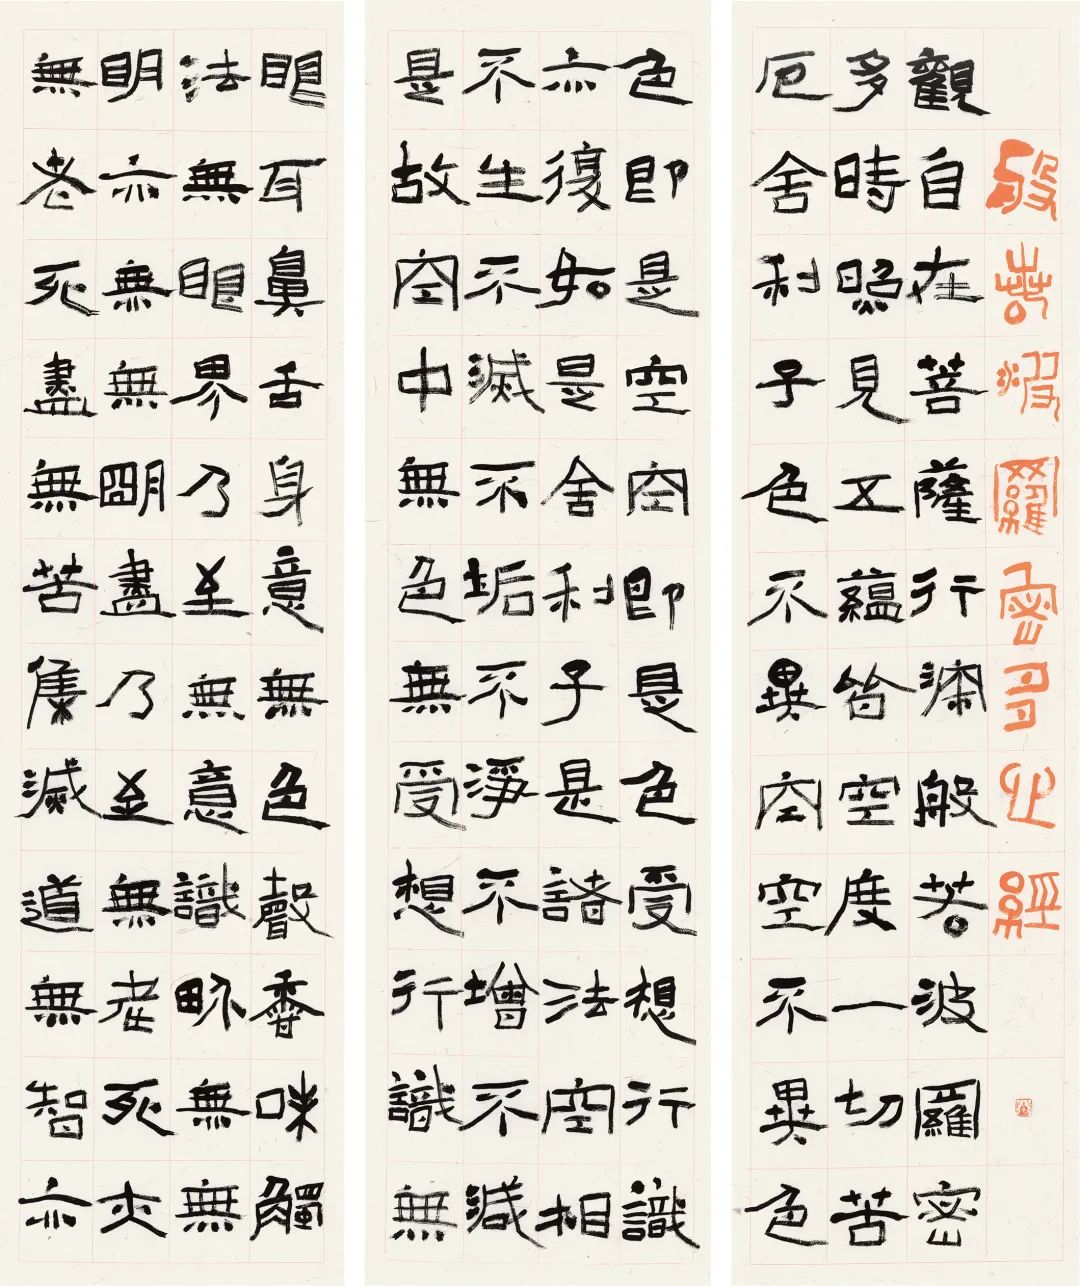 般若波羅密多心經
觀自在菩薩行深般若波羅密
多時照見五蘊皆空度一切苦
厄舍利子色不異空空不異色
色即是空空即是色受想行識
亦復如是舍利子是諸法空相
不生不滅不垢不淨不增不減
是故空中無色無受想行識無
眼耳鼻舌身意無色聲香味觸
法無眼界乃至無意識畍無無
明亦無無明盡乃至無老死亦
無老死盡無苦集滅道無智亦